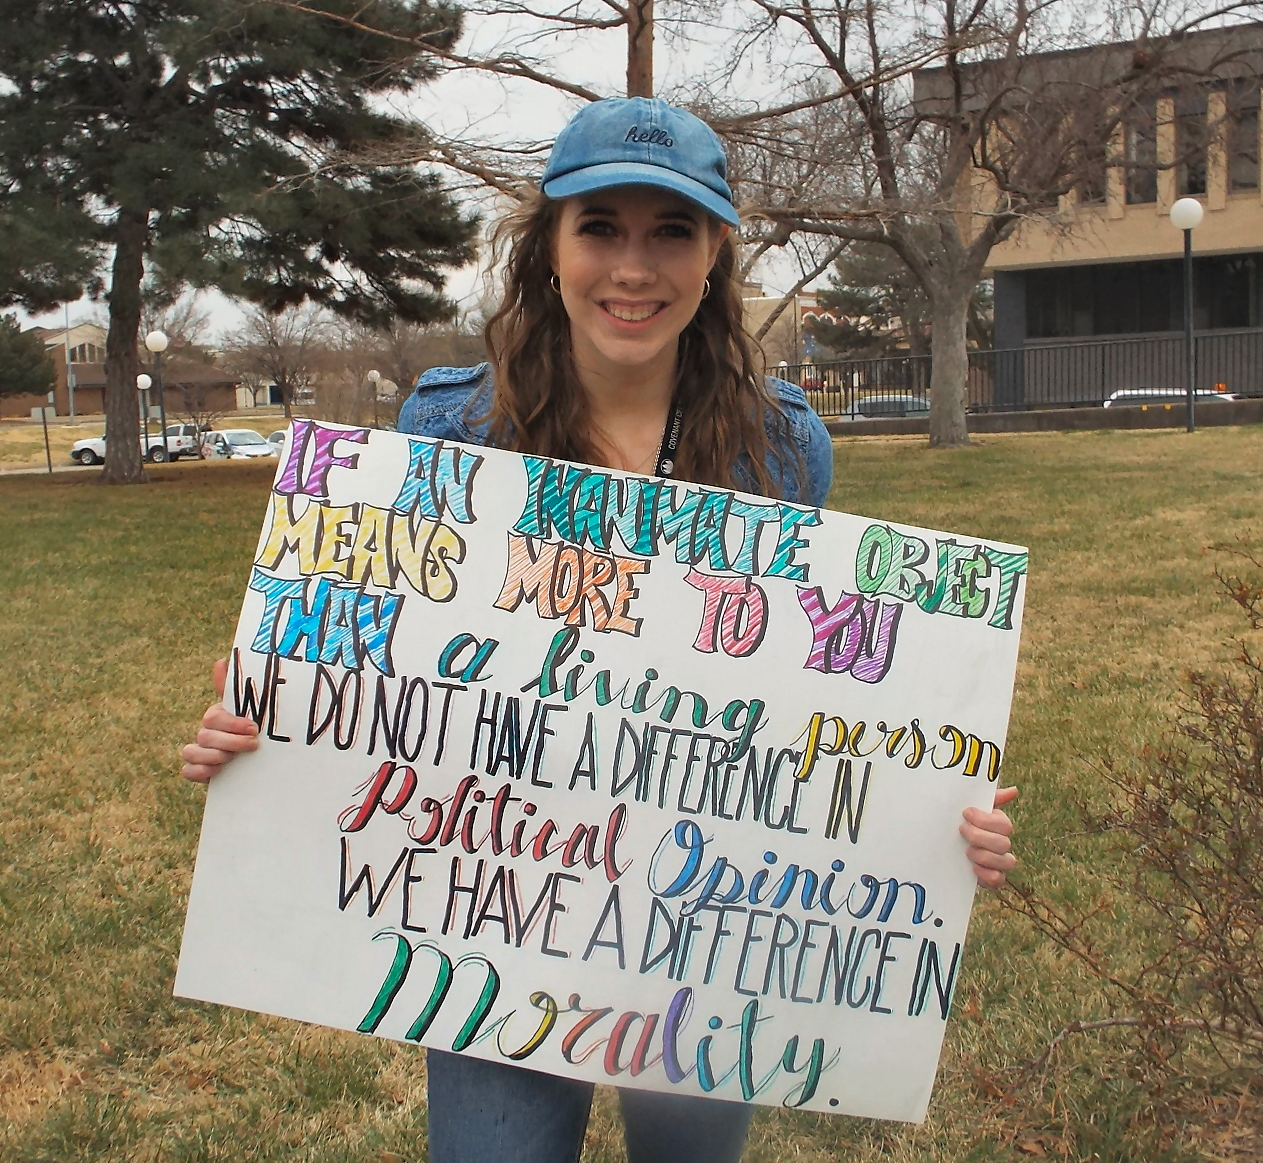 hello
COVENANT
IF AN INANIMATE OBJECT
MEANS MORE TO YOU
THAN a living person
WE DO NOT HAVE A DIFFERENCE IN
Political Opinion.
WE HAVE A DIFFERENCE IN
Morality.